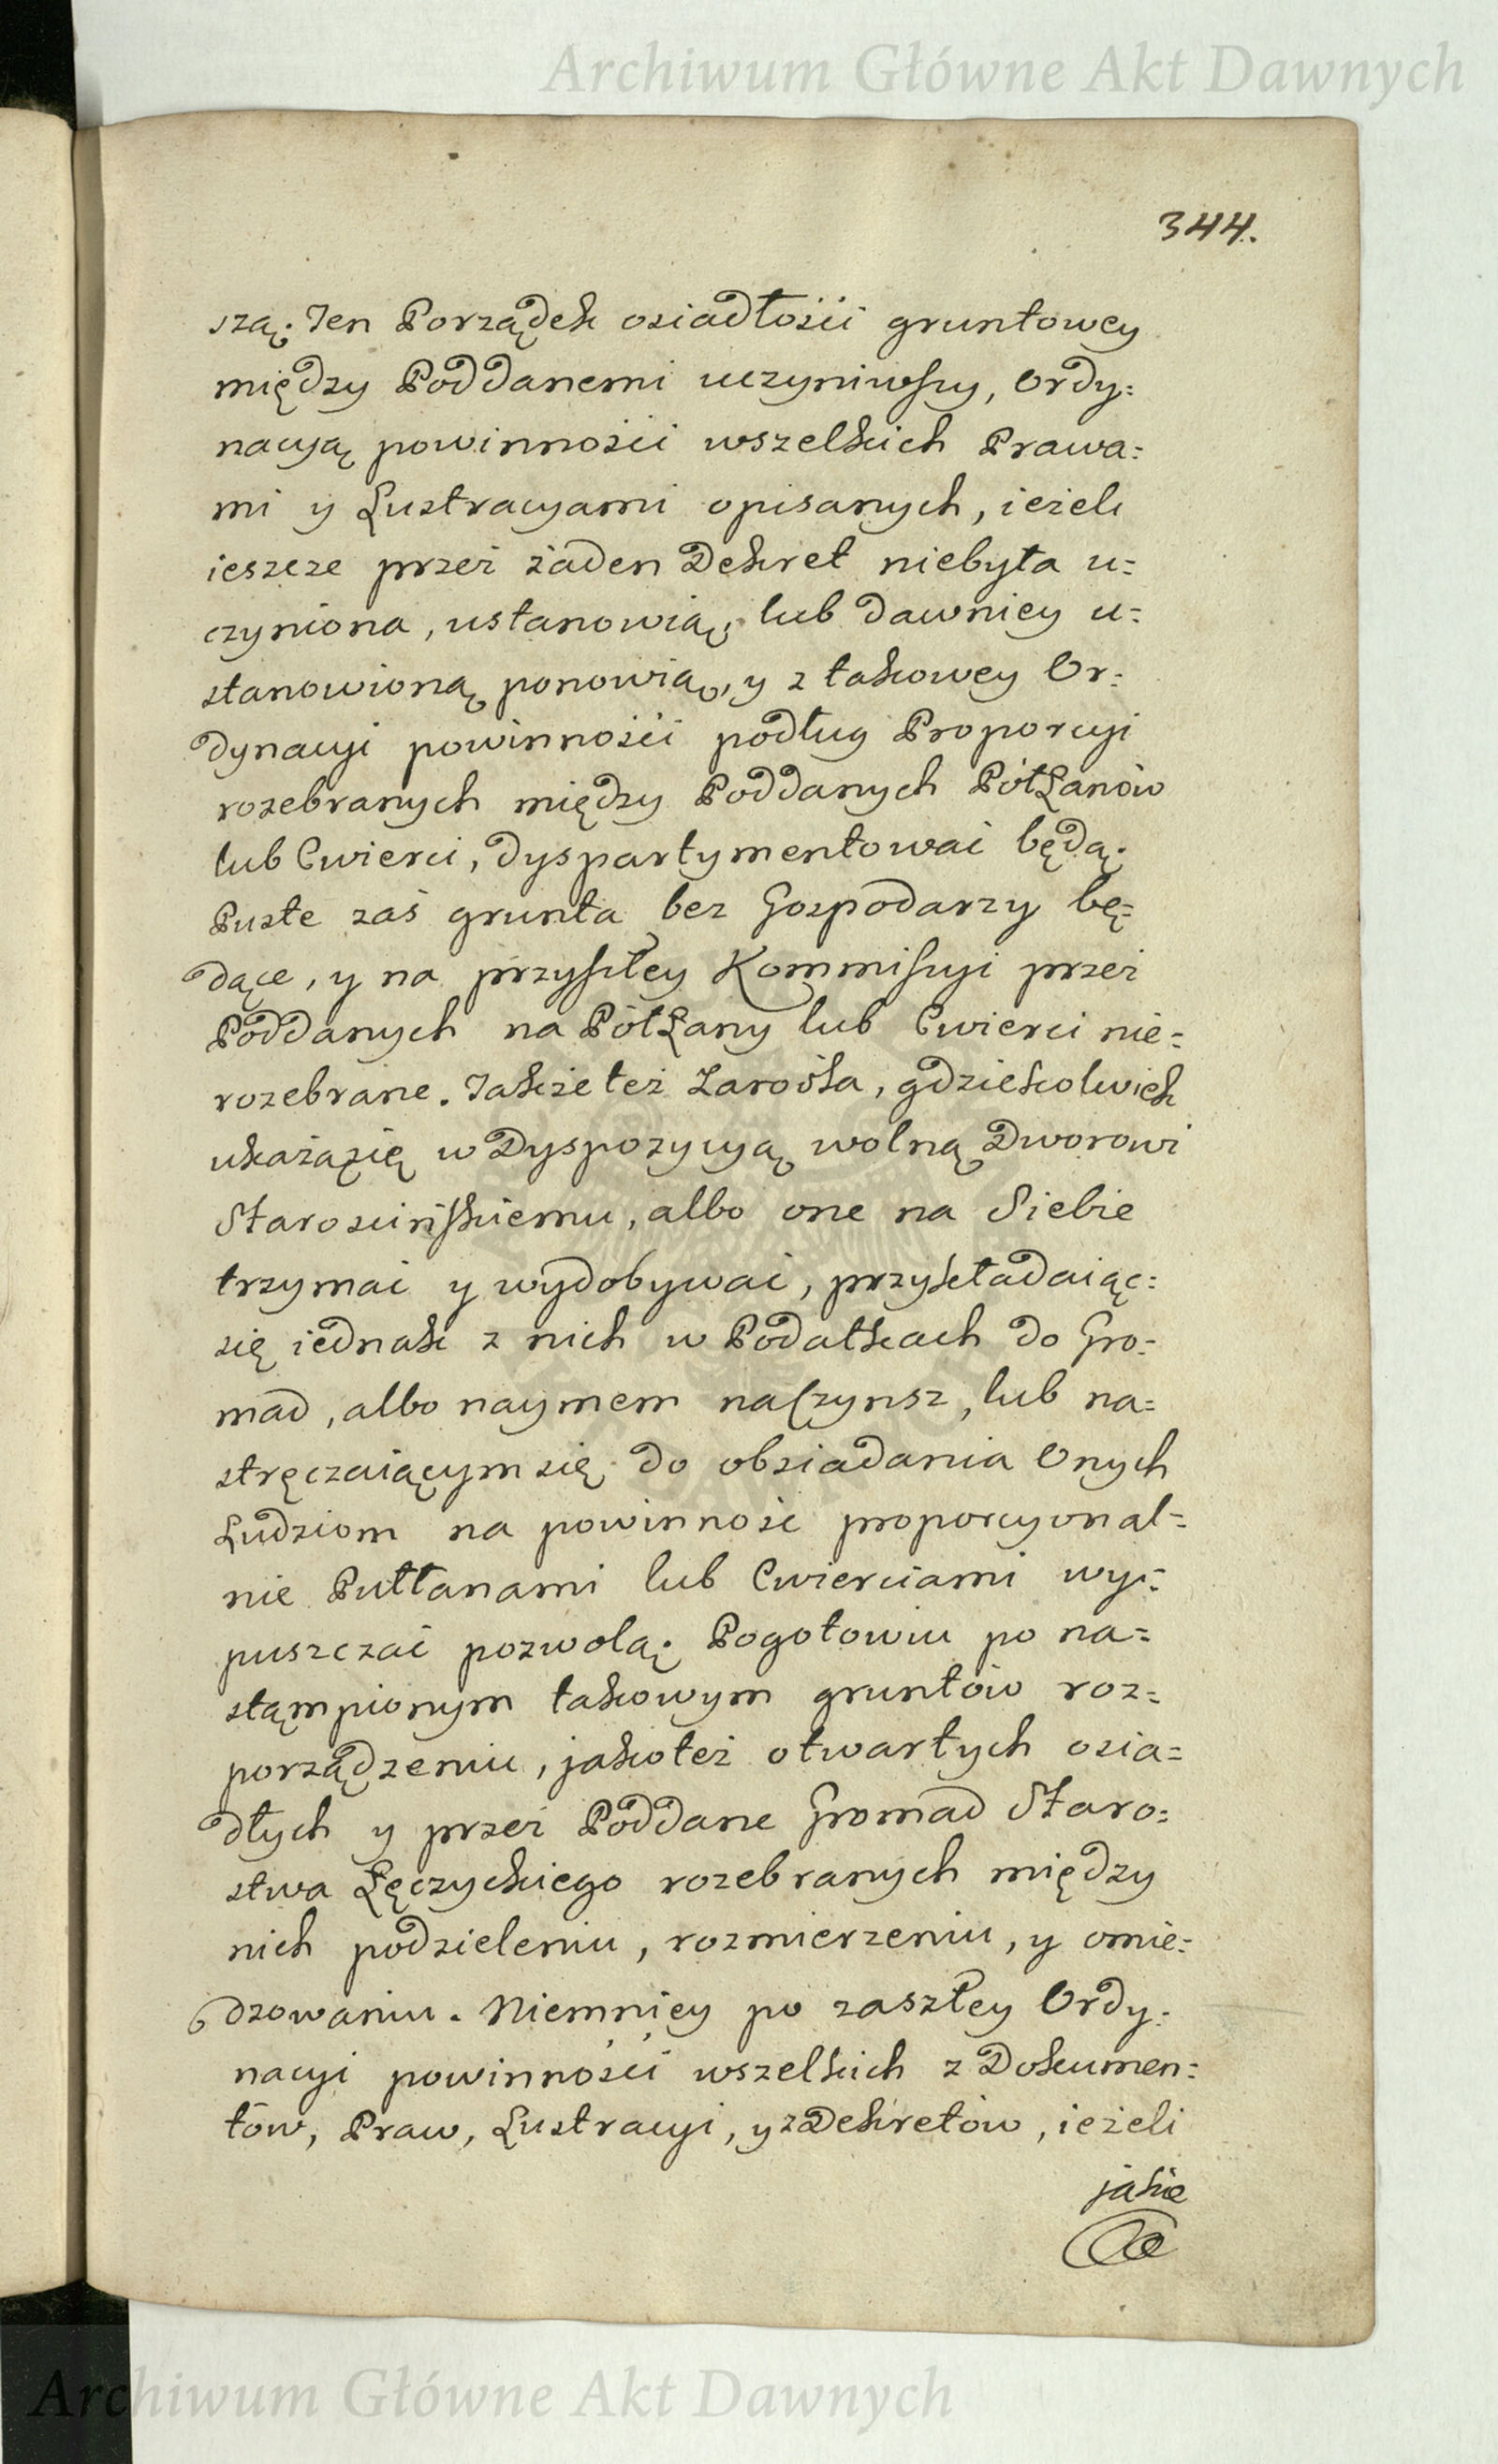 Archiwum Główne Akt Dawnych
344.
szą. Ten Porządek osiadłośći gruntowey
między Poddanemi uczyniwszy, Ordy:
nacyą powinnośći wszelkich Prawa:
mi y Lustracyami opisanych, ieżeli
ieszcze przez żaden Dekret niebyła u:
czyniona, ustanowią, lub dawniey u:
stanowioną ponowią, y z takowey Or:
dynacyi powinnośći podług Proporcyi
rozebranych między Poddanych PółŁanów
lub Cwierci, dyspartymentować będą.
Puste zaś grunta bez Gospodarzy bę:
dące, y na przyszłey Kommissyi przez
Poddanych na PółŁany lub Cwierci nie:
rozebrane. Jakże też Zarośla, gdziekolwiek
ukażąsię w Dyspozycyą wolną Dworowi
Starosćińskiemu, albo one na Siebie
trzymać y wydobywać, przykładaiąc:
się iednak z nich w Podatkach do Gro:
mad, albo naymem naCzynsz, lub na:
stręczaiącym się do obsiadania Onych
Ludziom na powinność proporcyonal:
nie Pułłanami lub Cwierciami wy:
puszczać pozwolą. Pogotowiu po na:
stąmpionym takowym gruntów roz:
porządzeniu, jakoteż otwartych osia:
dłych y przez Poddane Gromad Staro:
stwa Łęczyckiego rozebranych między
nich podzieleniu, rozmierzeniu, y omie:
dzowaniu. Niemniey po zaszłey Ordy:
nacyi powinnośći wszelkich z Dokumen:
tów, Praw, Lustracyi, y z Dekretów, ieżeli
jakie
Archiwum Główne Akt Dawnych